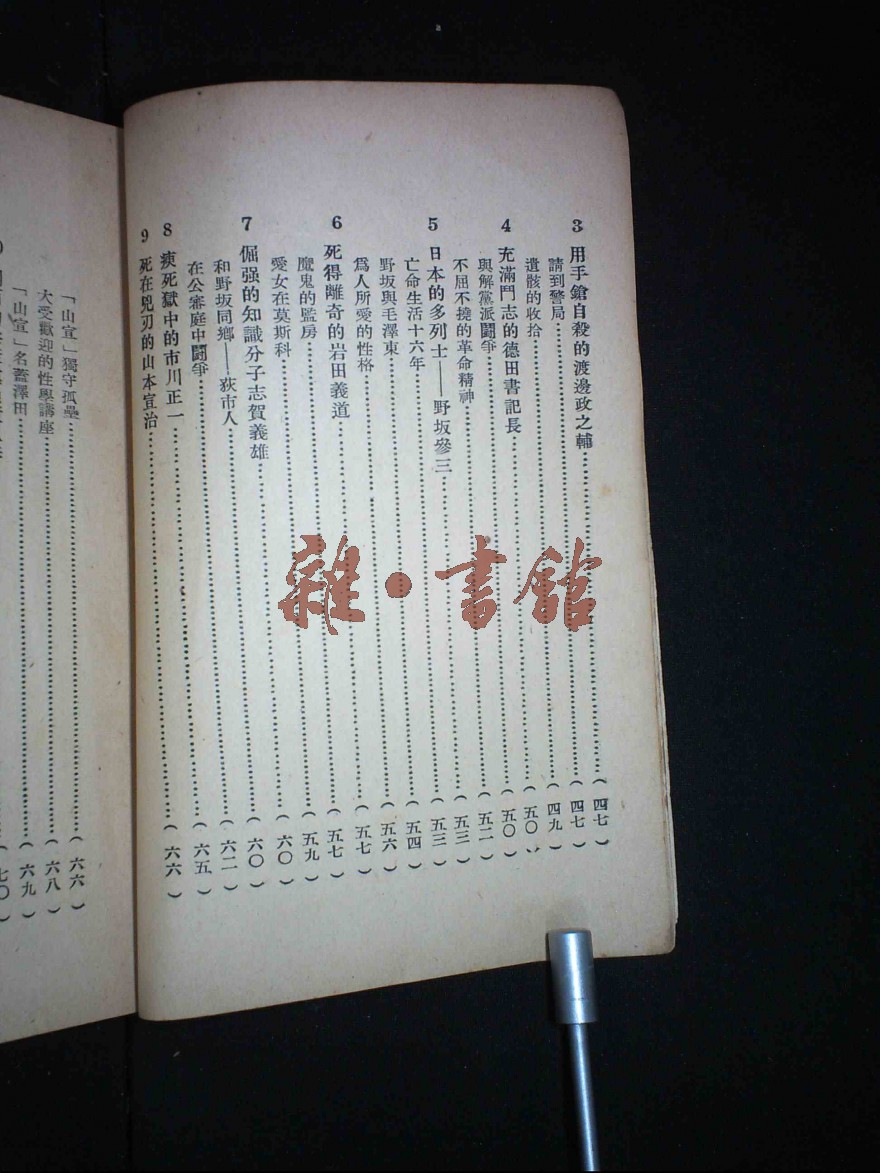 3 用手鎗自殺的渡邊政之輔……(四七)
請到警局……(四七)
遺骸的收拾……(四九)
4 充滿鬥志的德田書記長……(五〇)
與解黨派鬪爭……(五〇)
不屈不撓的革命精神……(五二)
5 日本的多列士——野坂參三……(五三)
亡命生活十六年……(五三)
野坂與毛澤東……(五四)
爲人所愛的性格……(五六)
6 死得離奇的岩田義道……(五七)
魔鬼的監房……(五七)
愛女在莫斯科……(五九)
7 倔强的知識分子志賀義雄……(六〇)
和野坂同鄉——荻市人……(六〇)
在公審庭中鬪爭……(六二)
8 瘐死獄中的市川正一……(六五)
9 死在兇刃的山本宣治……(六六)
「山宣」獨守孤壘……(六六)
大受歡迎的性學講座……(六八)
「山宣」名蓋澤田……(六九)
(七〇)
雜·書館